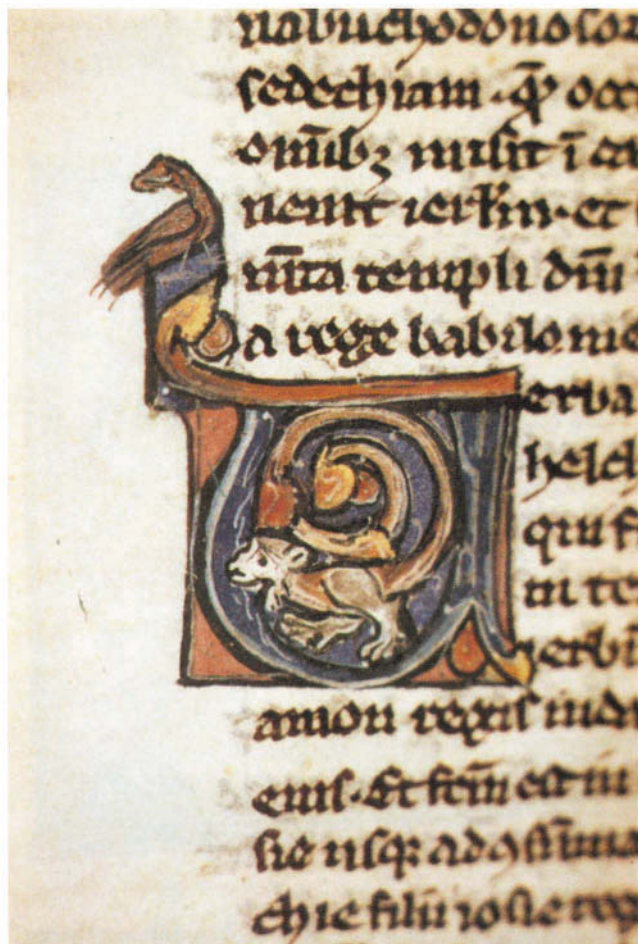 nabuchodonosor
sedechiam · occ
om̄ibꝫ misit ī ca
uenit ierłm · et
templi dn̄i
a rege babilonie
Verba
helch
qui f
in te
uerbū
amon regis iuda
eius · Et fc̄m est in
sie usqꝫ ad ꝯsūma
chie filii iosie reg